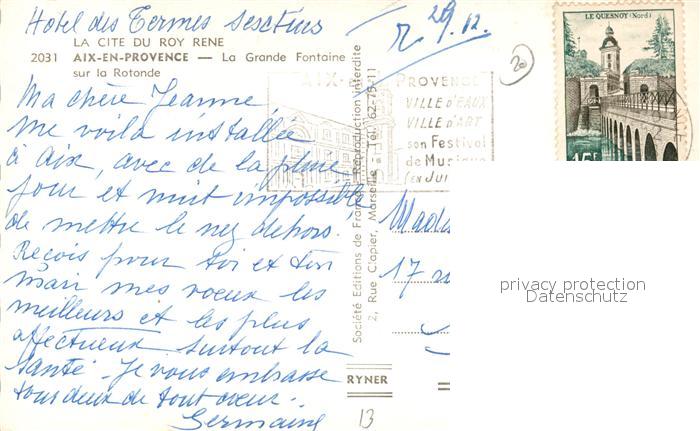 Hotel des Termes Sesctius
LA CITE DU ROY RENE
2031 AIX-EN-PROVENCE — La Grande Fontaine
sur la Rotonde
Ma chère Jeanne,
Me voila installée
à Aix, avec de la pluie
jour et nuit impossible
de mettre le nez dehors.
Reçois pour toi et ton
mari mes voeux les
meilleurs et les plus
affectueux surtout la
santé. Je vous embrasse
tous deux de tout coeur.
Germaine
Société Editions de France - Reproduction interdite
2, Rue Clapier, Marseille - Tél. 62-75-11
RYNER
13
29.12.
20
AIX-
PROVENCE
VILLE d'EAUX
VILLE d'ART
son Festival
de Musique
(EN JUI
LE QUESNOY (Nord)
15F
Mada
17 ru
privacy protection
Datenschutz